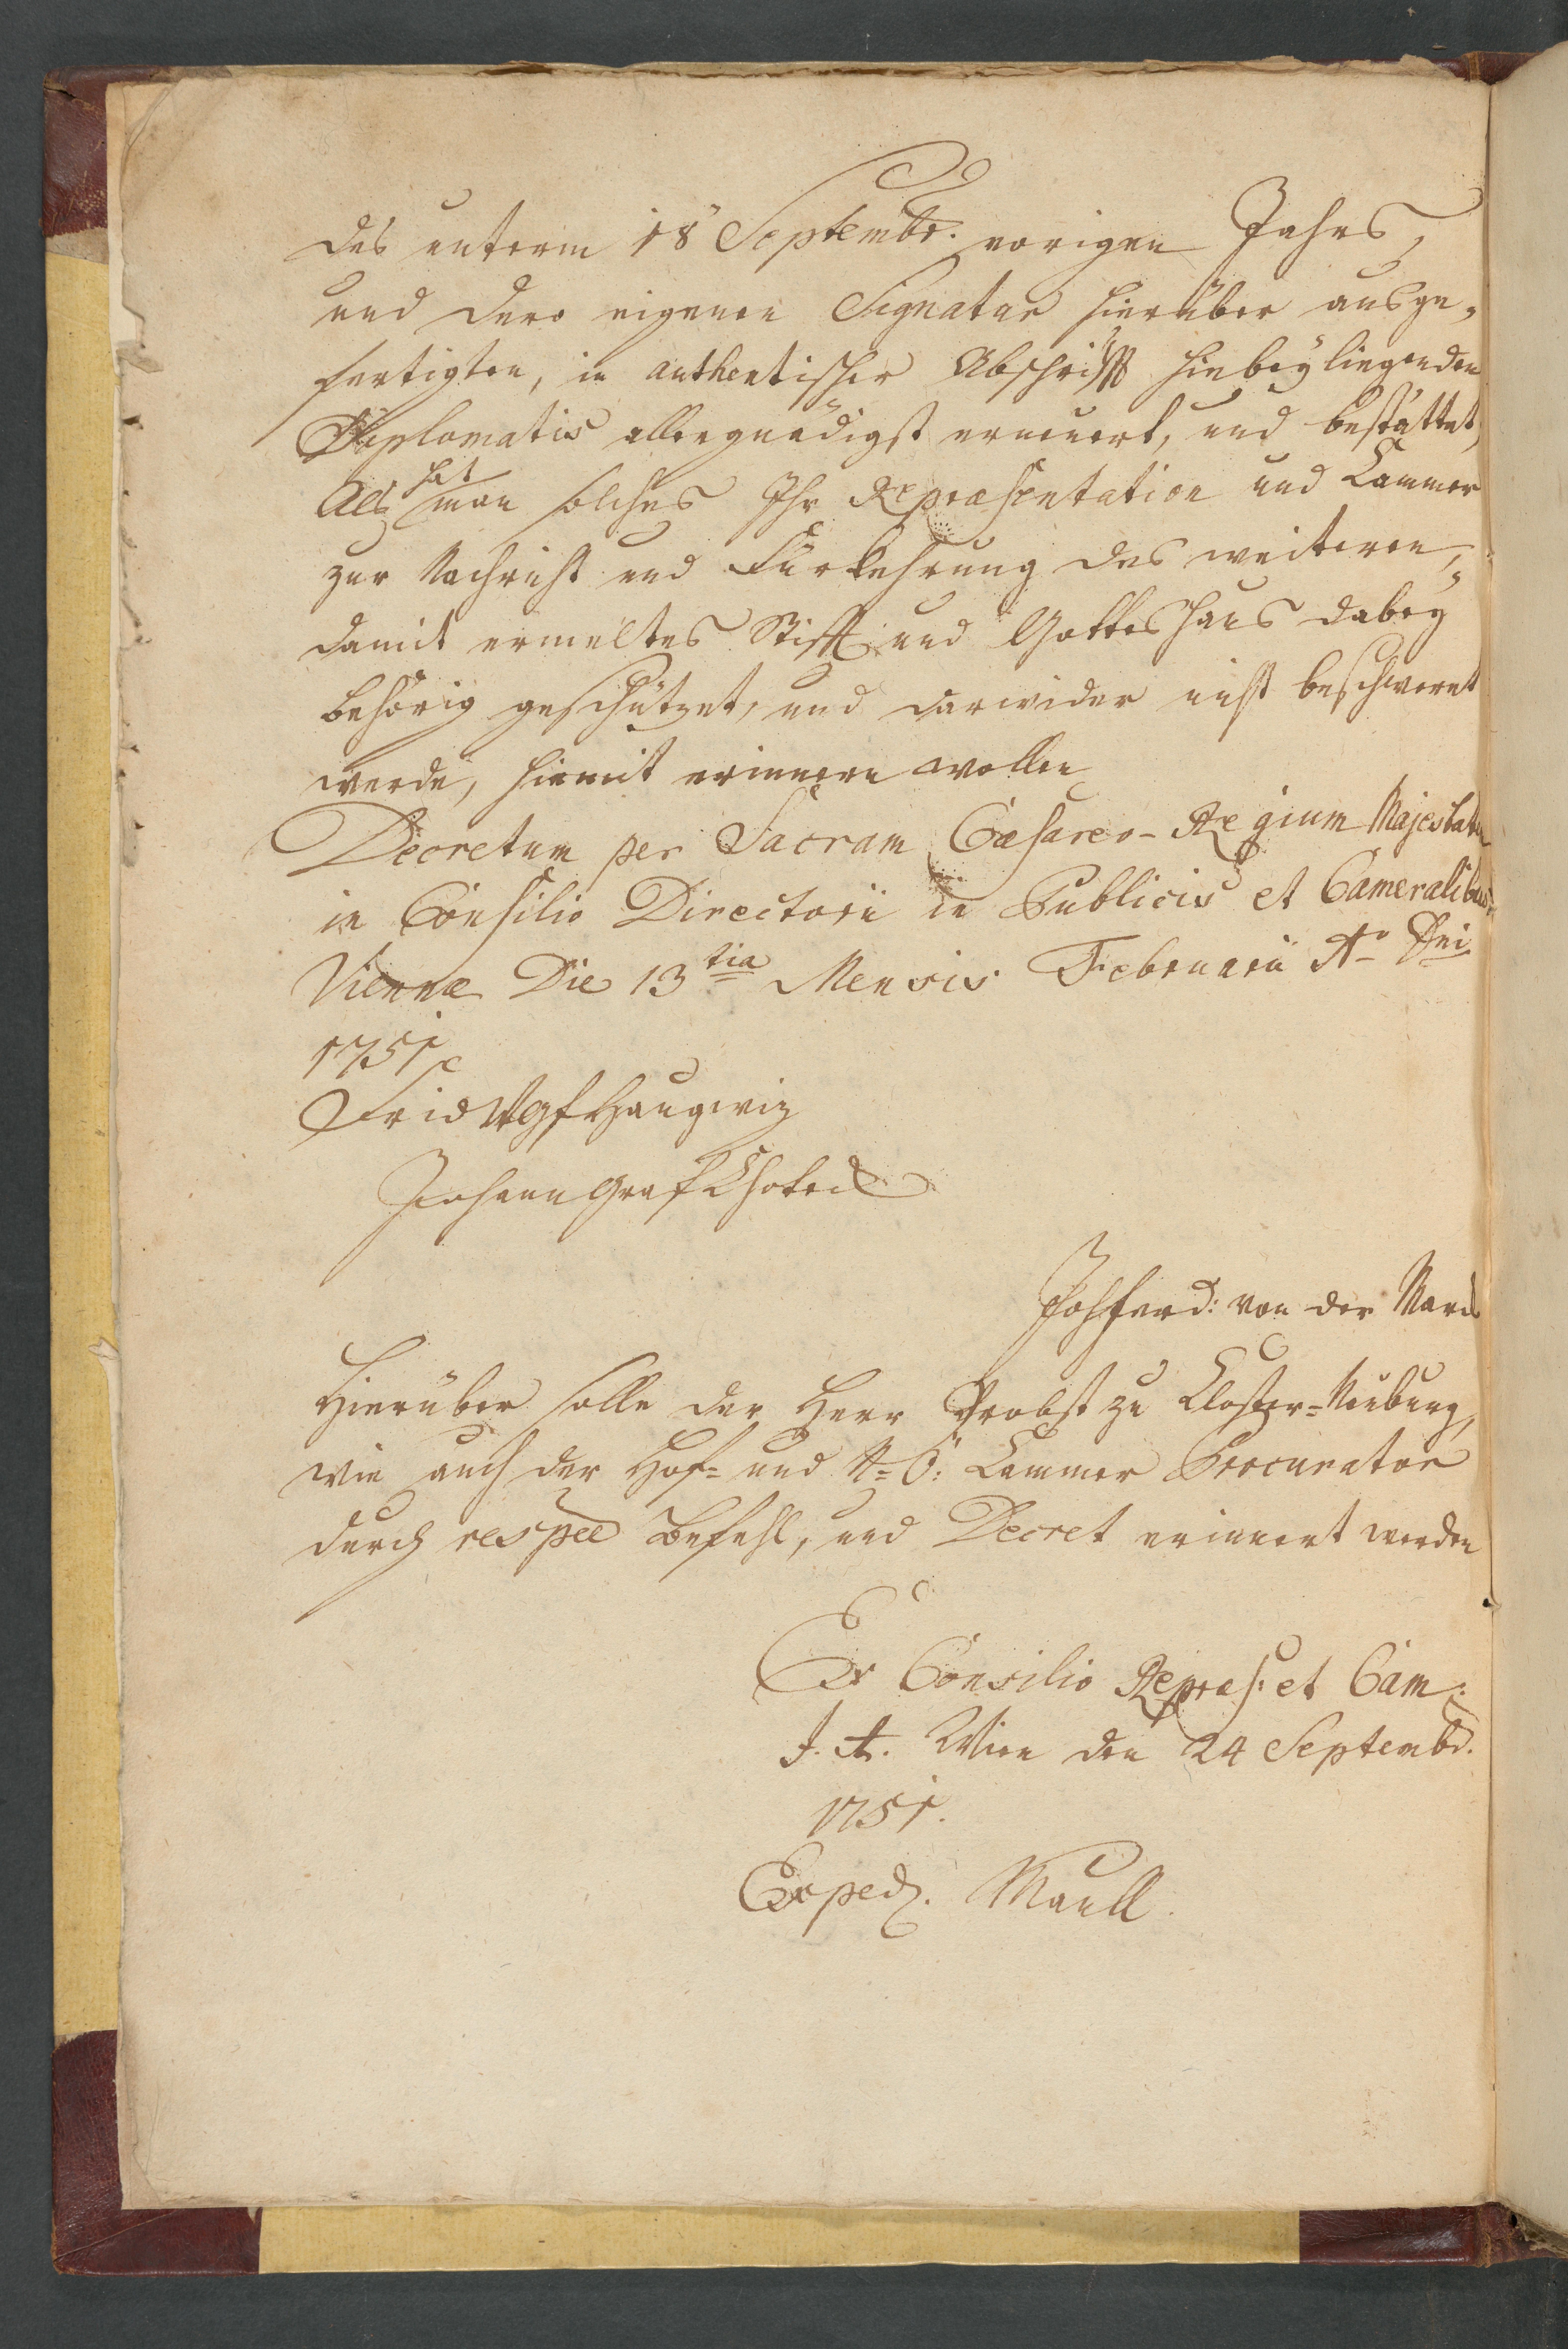 des unterm 18 Septembr. vorigen Jahrs,
und dero eigenen Signatur hierüber ausge-
fertigten, in authentischer Abschrifft hiebey liegenden
Diplomatis allergnädigst erneuert, und bestättet,
Als hat man solches Ihr Repraesentation und Cammer
zur Nachricht und Fürkehrung des weiteren,
damit ermeltes Stifft und Gotteshaus dabey
behörig geschützet, und darwider nicht beschweret
werde, hiemit erinneren wollen
Decretum per Sacram Caesareo-Regium Majestatem
in Consilio Directorii in Publicis et Cameralibus.
Viennae Die 13tia Mensis Februarii Ao Dni
1751
Frid W Gf Haugwiz
Johann Graf Chotek
Joh ferd: von der Marck
Hierüber solle der Herr Probst zu Closter-Neuburg,
wie auch der Hof- und N-Ö: Cammer Procurator
durch respee Befehl, und Decret erinnert werden
Ex Consilio Repraes: et Cam:
I. A. Wien den 24 Septembr.
1751.
Exped. Maull.